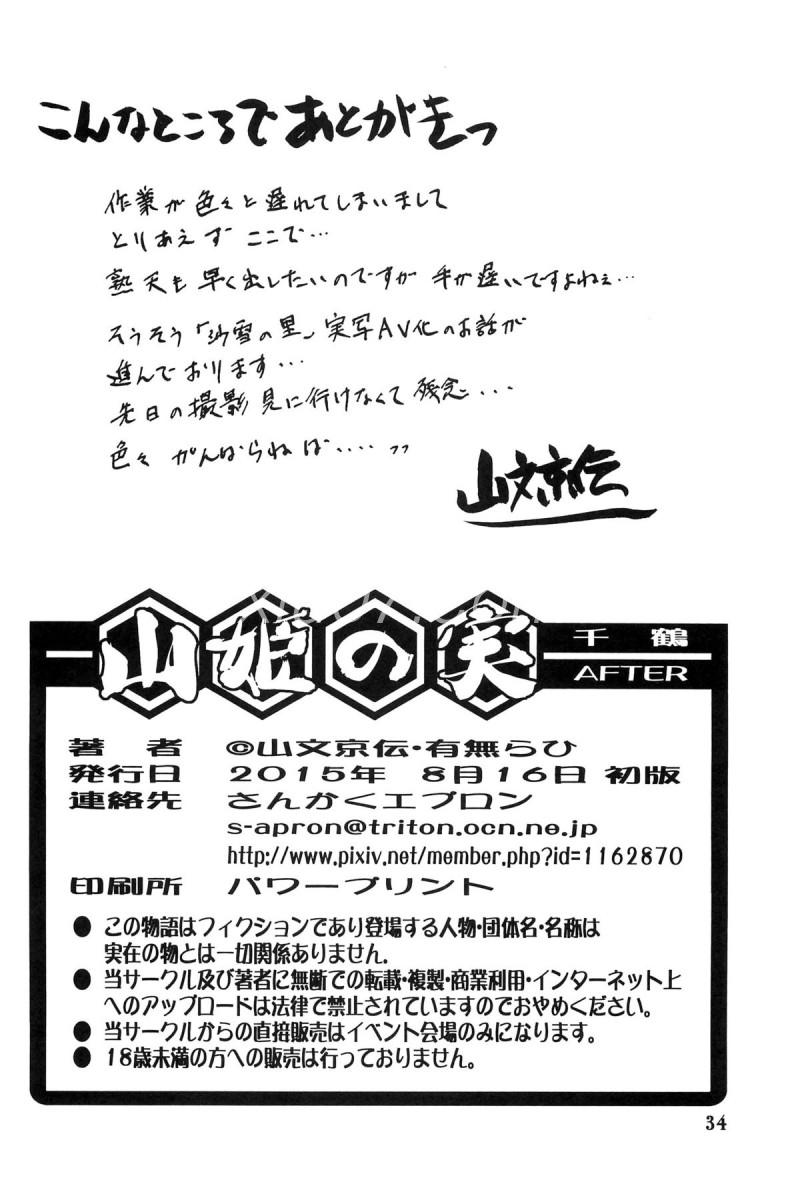 こんなところで あとがきっ
作業が色々と遅れてしまいまして
とりあえず ここで…
熟天も早く出したいのですが 手が遅いですよねぇ…
そうそう「沙雪の里」実写AV化のお話が
進んでおります…
先日の撮影見に行けなくて残念…
色々 がんばらねば....
山文京伝
山姫の実
千鶴
AFTER
著者 ©山文京伝・有無らひ
発行日 2015年 8月16日 初版
連絡先 さんかくエプロン
s-apron@triton.ocn.ne.jp
http://www.pixiv.net/member.php?id=1162870
印刷所 パワープリント
● この物語はフィクションであり登場する人物・団体名・名称は
実在の物とは一切関係ありません.
● 当サークル及び著者に無断での転載・複製・商業利用・インターネット上
へのアップロードは法律で禁止されていますのでおやめください。
● 当サークルからの直接販売はイベント会場のみになります。
● 18歳未満の方への販売は行っておりません。
34